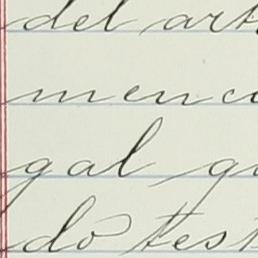 del art
menci
gal qu
do test